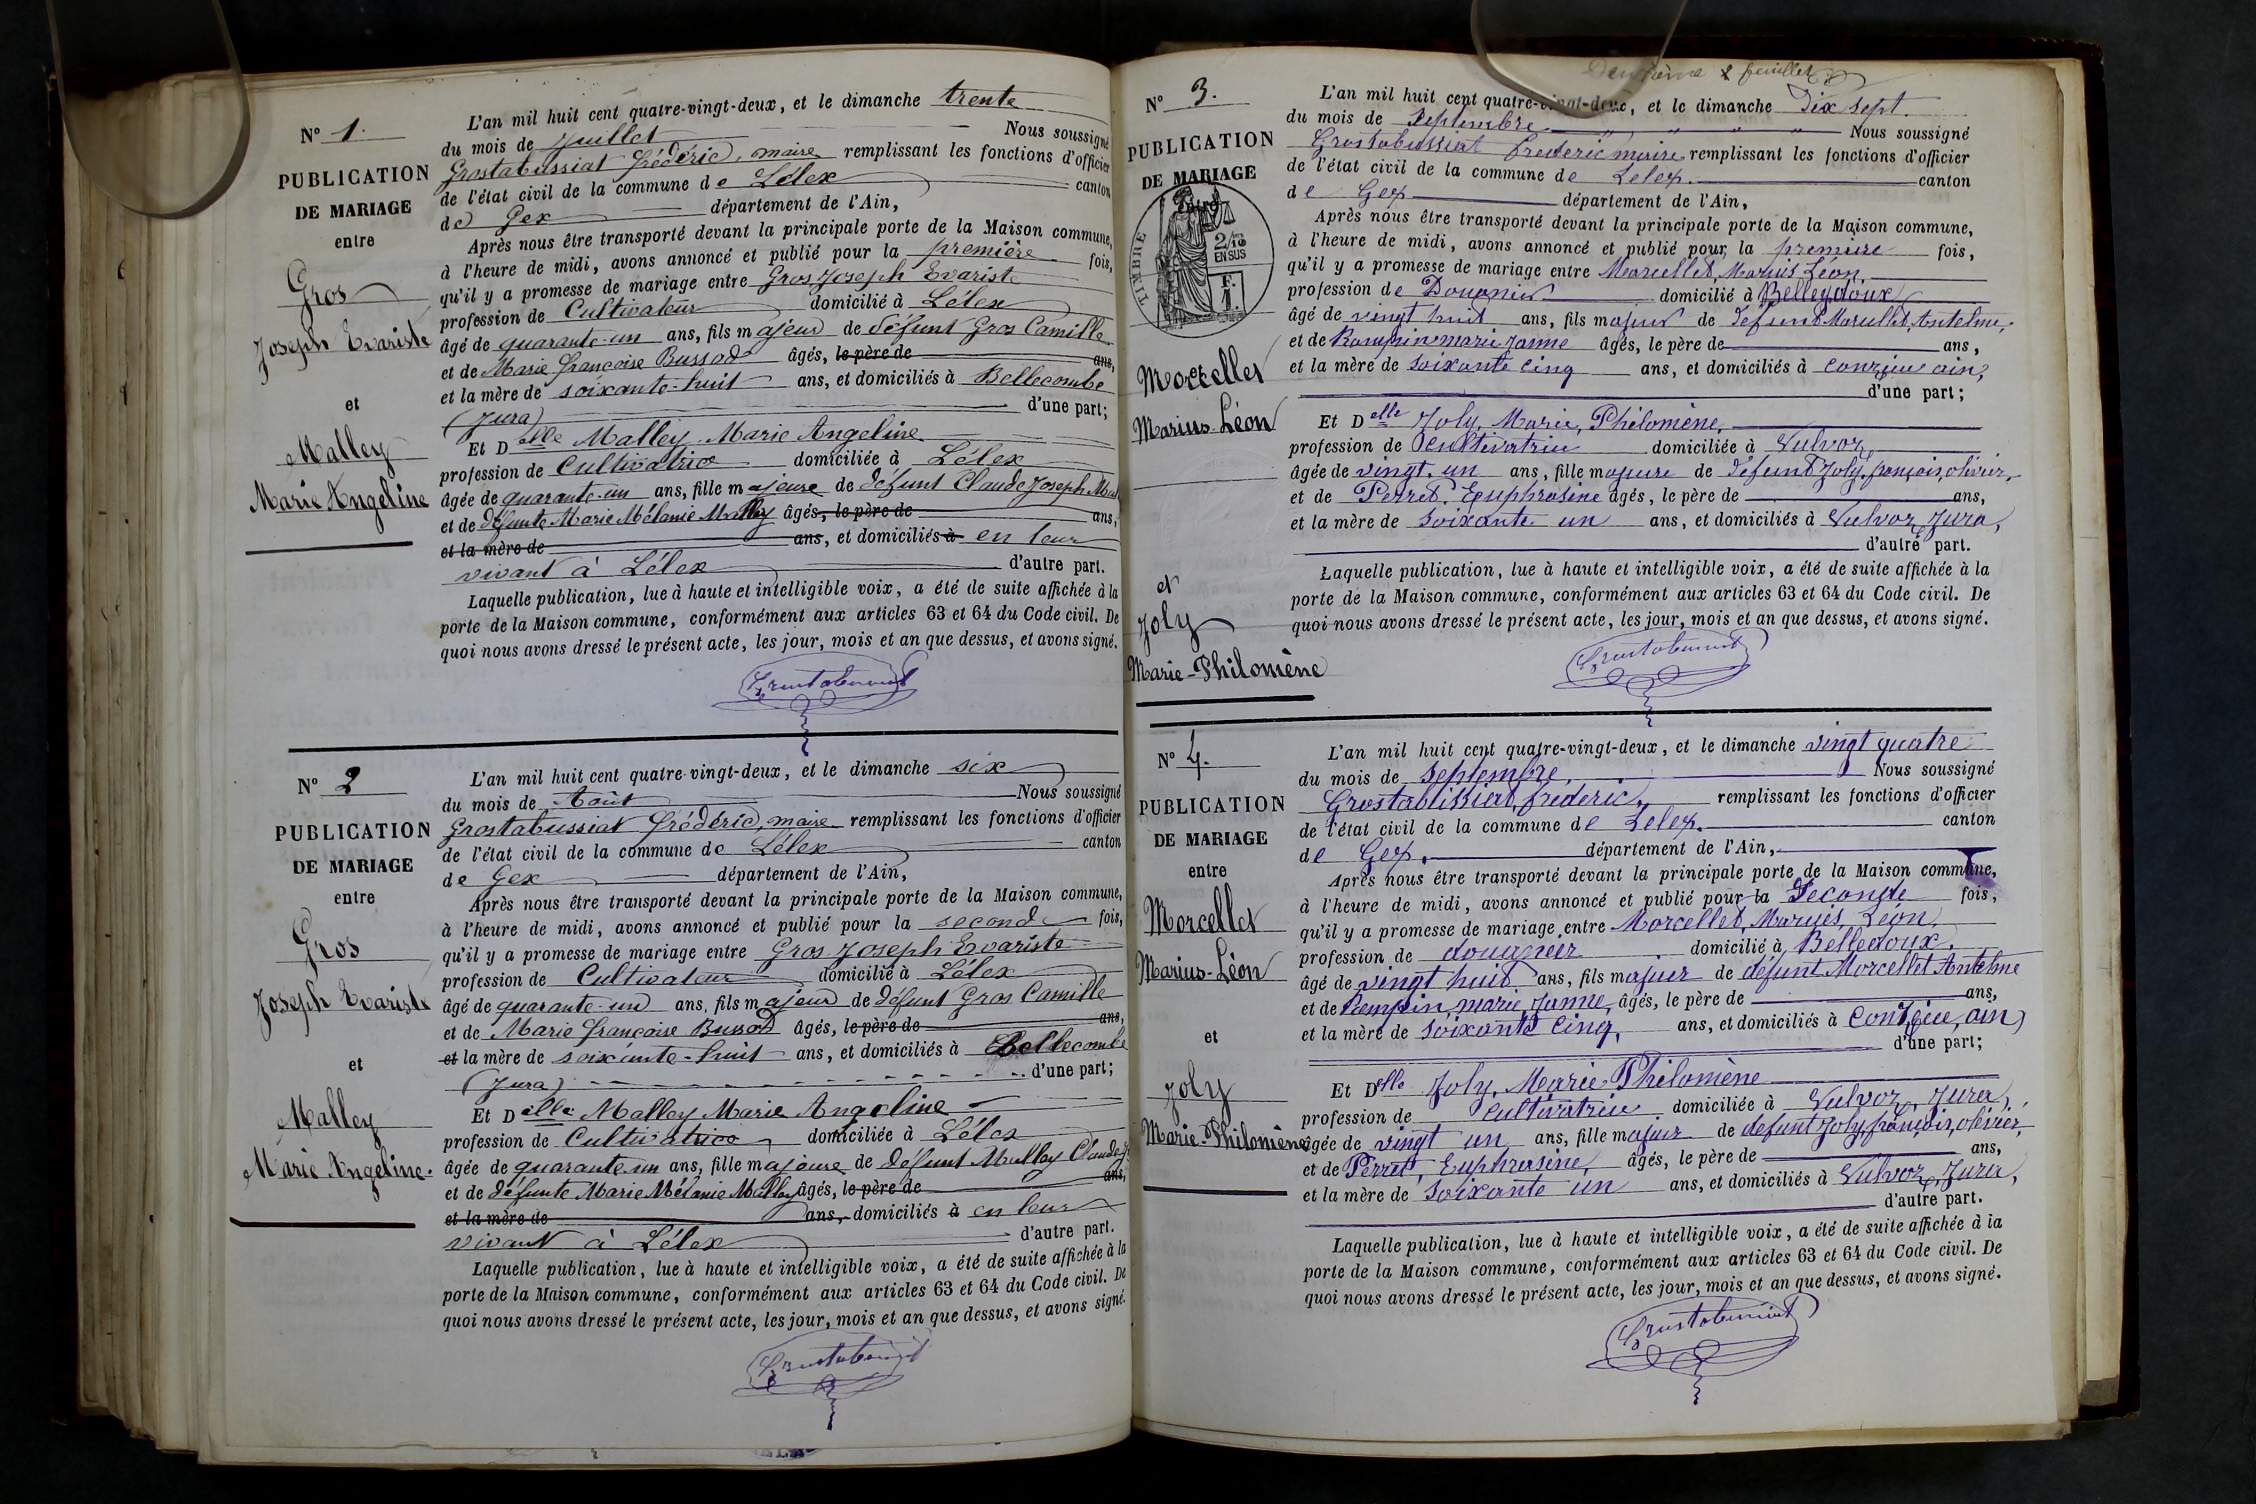 N° 1.
PUBLICATION
DE MARIAGE
entre
Gros
Joseph Evariste
et
Malley
Marie Angeline
L'an mil huit cent quatre-vingt-deux, et le dimanche trente
du mois de Juillet Nous soussigné
Grostabussiat frédéric, maire remplissant les fonctions d'officier
de l'état civil de la commune de Lélex canton
de Gex département de l'Ain,
Après nous être transporté devant la principale porte de la Maison commune,
à l'heure de midi, avons annoncé et publié pour la première fois,
qu'il y a promesse de mariage entre Gros Joseph Evariste
profession de Cultivateur domicilié à Lélex
âgé de quarante-un ans, fils majeur de défunt Gros Camille
et de Marie françoise Bussod âgés, le père de ans,
et la mère de soixante-huit ans, et domiciliés à Bellecombe
(Jura) d'une part;
Et Delle Malley Marie Angeline
profession de Cultivatrice domiciliée à Lélex
âgée de quarante-un ans, fille majeure de défunt Claude Joseph
et de défunte Marie Mélanie Malley âgés, le père de ans,
et la mère de ans, et domiciliés à en leur
vivant à Lélex d'autre part.
Laquelle publication, lue à haute et intelligible voix, a été de suite affichée à la
porte de la Maison commune, conformément aux articles 63 et 64 du Code civil. De
quoi nous avons dressé le présent acte, les jour, mois et an que dessus, et avons signé.
Grostabussiat
N° 2
PUBLICATION
DE MARIAGE
entre
Gros
Joseph Evariste
et
Malley
Marie Angeline.
L'an mil huit cent quatre-vingt-deux, et le dimanche six
du mois de Août Nous soussigné
Grostabussiat frédéric, maire remplissant les fonctions d'officier
de l'état civil de la commune de Lélex canton
de Gex département de l'Ain,
Après nous être transporté devant la principale porte de la Maison commune,
à l'heure de midi, avons annoncé et publié pour la seconde fois,
qu'il y a promesse de mariage entre Gros Joseph Evariste
profession de Cultivateur domicilié à Lélex
âgé de quarante-un ans, fils majeur de défunt Gros Camille
et de Marie françoise Bussod âgés, le père de ans,
et la mère de soixante-huit ans, et domiciliés à Bellecombe
(Jura) d'une part;
Et Delle Malley Marie Angeline
profession de Cultivatrice domiciliée à Lélex
âgée de quarante-un ans, fille majeure de défunt Malley Claude J.
et de défunte Marie Mélanie Malley âgés, le père de ans,
et la mère de ans, domiciliés à en leur
vivant à Lélex d'autre part.
Laquelle publication, lue à haute et intelligible voix, a été de suite affichée à la
porte de la Maison commune, conformément aux articles 63 et 64 du Code civil. De
quoi nous avons dressé le présent acte, les jour, mois et an que dessus, et avons signé.
Grostabussiat
Deuxième feuillet
N° 3.
PUBLICATION
DE MARIAGE
entre
TIMBRE
2/10
EN SUS
F.
1.
et
Morcellet
Marius-Léon
et
Joly
Marie-Philomène
L'an mil huit cent quatre-vingt-deux, et le dimanche Dix sept.
du mois de Septembre Nous soussigné
Grostabussiat frederic maire remplissant les fonctions d'officier
de l'état civil de la commune de Lelex. canton
de Gex département de l'Ain,
Après nous être transporté devant la principale porte de la Maison commune,
à l'heure de midi, avons annoncé et publié pour la premiere fois,
qu'il y a promesse de mariage entre Morcellet, Marius Léon,
profession de Douanier domicilié à Belleydoux
âgé de vingt huit ans, fils majeur de défunt Morcellet, Antelme,
et de Rampin marie Janne âgés, le père de ans,
et la mère de soixante cinq ans, et domiciliés à Conzieu ain,
d'une part;
Et Delle Joly, Marie, Philomène,
profession de cultivatrice domiciliée à Vulvoz,
âgée de vingt, un ans, fille majeure de défunt Joly, françois, olivier,
et de Perret, Euphrasine âgés, le père de ans,
et la mère de soixante un ans, et domiciliés à Vulvoz, Jura,
d'autre part.
Laquelle publication, lue à haute et intelligible voix, a été de suite affichée à la
porte de la Maison commune, conformément aux articles 63 et 64 du Code civil. De
quoi nous avons dressé le présent acte, les jour, mois et an que dessus, et avons signé.
Grostabussiat
N° 4.
PUBLICATION
DE MARIAGE
entre
Morcellet
Marius-Léon
et
Joly
Marie-Philomène
L'an mil huit cent quatre-vingt-deux, et le dimanche vingt quatre
du mois de septembre, Nous soussigné
Grostabussiat, fréderic, remplissant les fonctions d'officier
de l'état civil de la commune de Lelex. canton
de Gex. département de l'Ain,
Après nous être transporté devant la principale porte de la Maison commune,
à l'heure de midi, avons annoncé et publié pour la Seconde fois,
qu'il y a promesse de mariage entre Morcellet, Marius, Léon,
profession de douanier domicilié à Belledoux.
âgé de vingt huit ans, fils majeur de défunt Morcellet Antelme
et de Rampin, marie, Janne, âgés, le père de ans,
et la mère de soixante cinq, ans, et domiciliés à Conzieu, ain,
d'une part;
Et Delle Joly, Marie-Philomène
profession de cultivatrice domiciliée à Vulvoz, Jura,
âgée de vingt un ans, fille majeur de défunt Joly, françois, olivier,
et de Perret, Euphrasine, âgés, le père de ans,
et la mère de soixante un ans, et domiciliés à Vulvoz, Jura,
d'autre part.
Laquelle publication, lue à haute et intelligible voix, a été de suite affichée à la
porte de la Maison commune, conformément aux articles 63 et 64 du Code civil. De
quoi nous avons dressé le présent acte, les jour, mois et an que dessus, et avons signé.
Grostabussiat